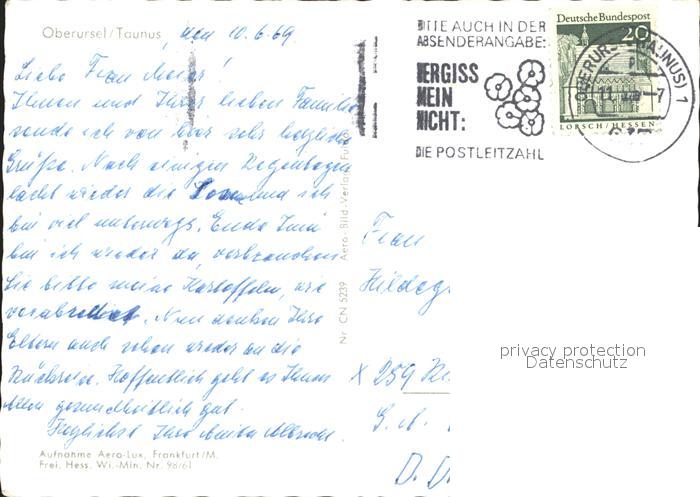 Oberursel/Taunus, den 10.6.69
Liebe Frau Meier!
Ihnen und Ihrer lieben Familie
sende ich von hier sehr herzliche
Grüße. Nach einigen Regentagen
lacht wieder die Sonne und ich
bin viel unterwegs. Ende Juni
bin ich wieder da, verbrauchen
Sie bitte meine Kartoffeln, wie
verabredet. Nun denken Ihre
Eltern auch schon wieder an die
Rückreise. Hoffentlich geht es Ihnen
allen gesundheitlich gut.
Herzlichst Ihre Anita Albrecht.
Aufnahme Aero-Lux, Frankfurt/M.
Frei. Hess. Wi.-Min. Nr. 98/61
Nr CN 5239 Aero-Bild-Verlag
BITTE AUCH IN DER
ABSENDERANGABE:
VERGISS
MEIN
NICHT:
DIE POSTLEITZAHL
Deutsche Bundespost
20
LORSCH/HESSEN
OBERURSEL (TAUNUS) 1
Frau
Hildeg
X 259
privacy protection
Datenschutz